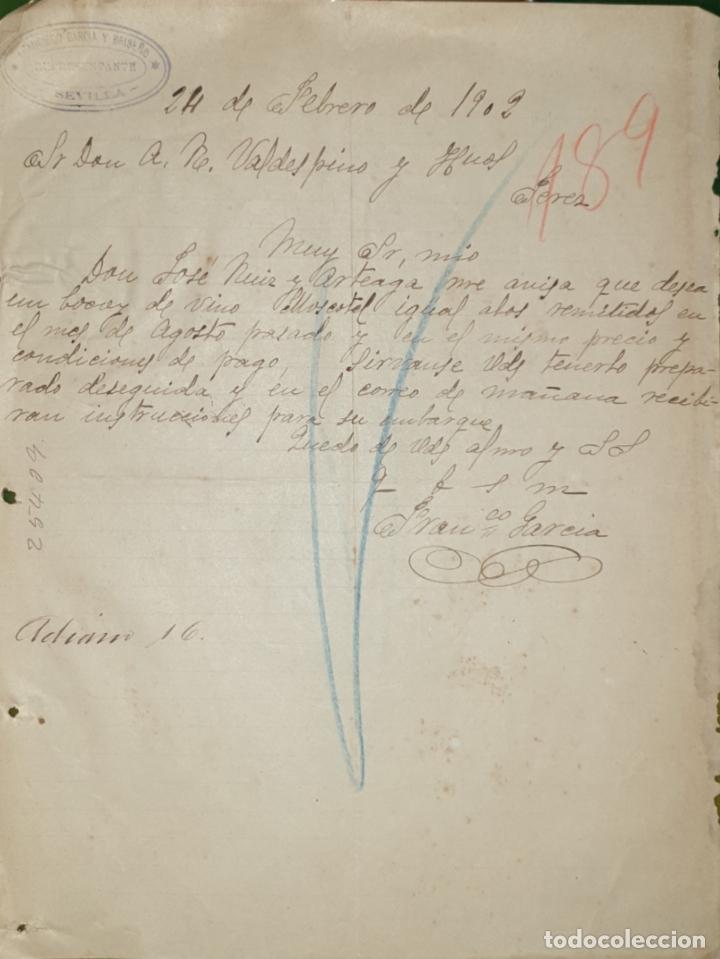 FRANCISCO GARCIA Y BRISEÑO
REPRESENTANTE
SEVILLA
24 de Febrero de 1902
189
Sr Don A. R. Valdespino y Hnos
Jerez
Muy Sr, mio
Don José Ruiz y Arteaga me avisa que desea
un bocoy de vino Moscatel igual alos remitidos en
el mes de Agosto pasado y en el mismo precio y
condiciones de pago, Sirvanse Vds tenerlo prepa-
rado deseguida y en el correo de mañana recibi-
ran instrucciones para su embarque
Quedo de Vds afmo y SS
q b s m
Franco Garcia
25409
16.
todocoleccion
todocoleccion.net